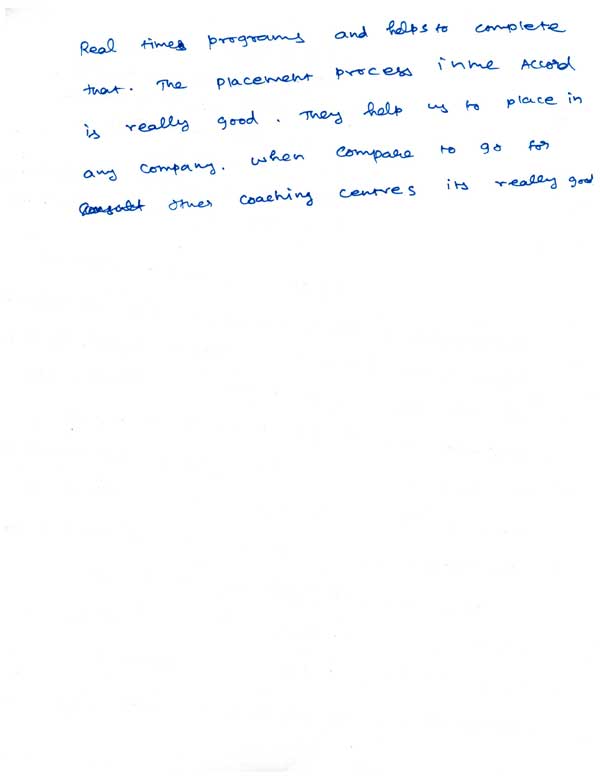 Real times programs and helps to complete
that. The placement process inme Accord
is really good. They help us to place in
any company. when compare to go for
other coaching centres its really good